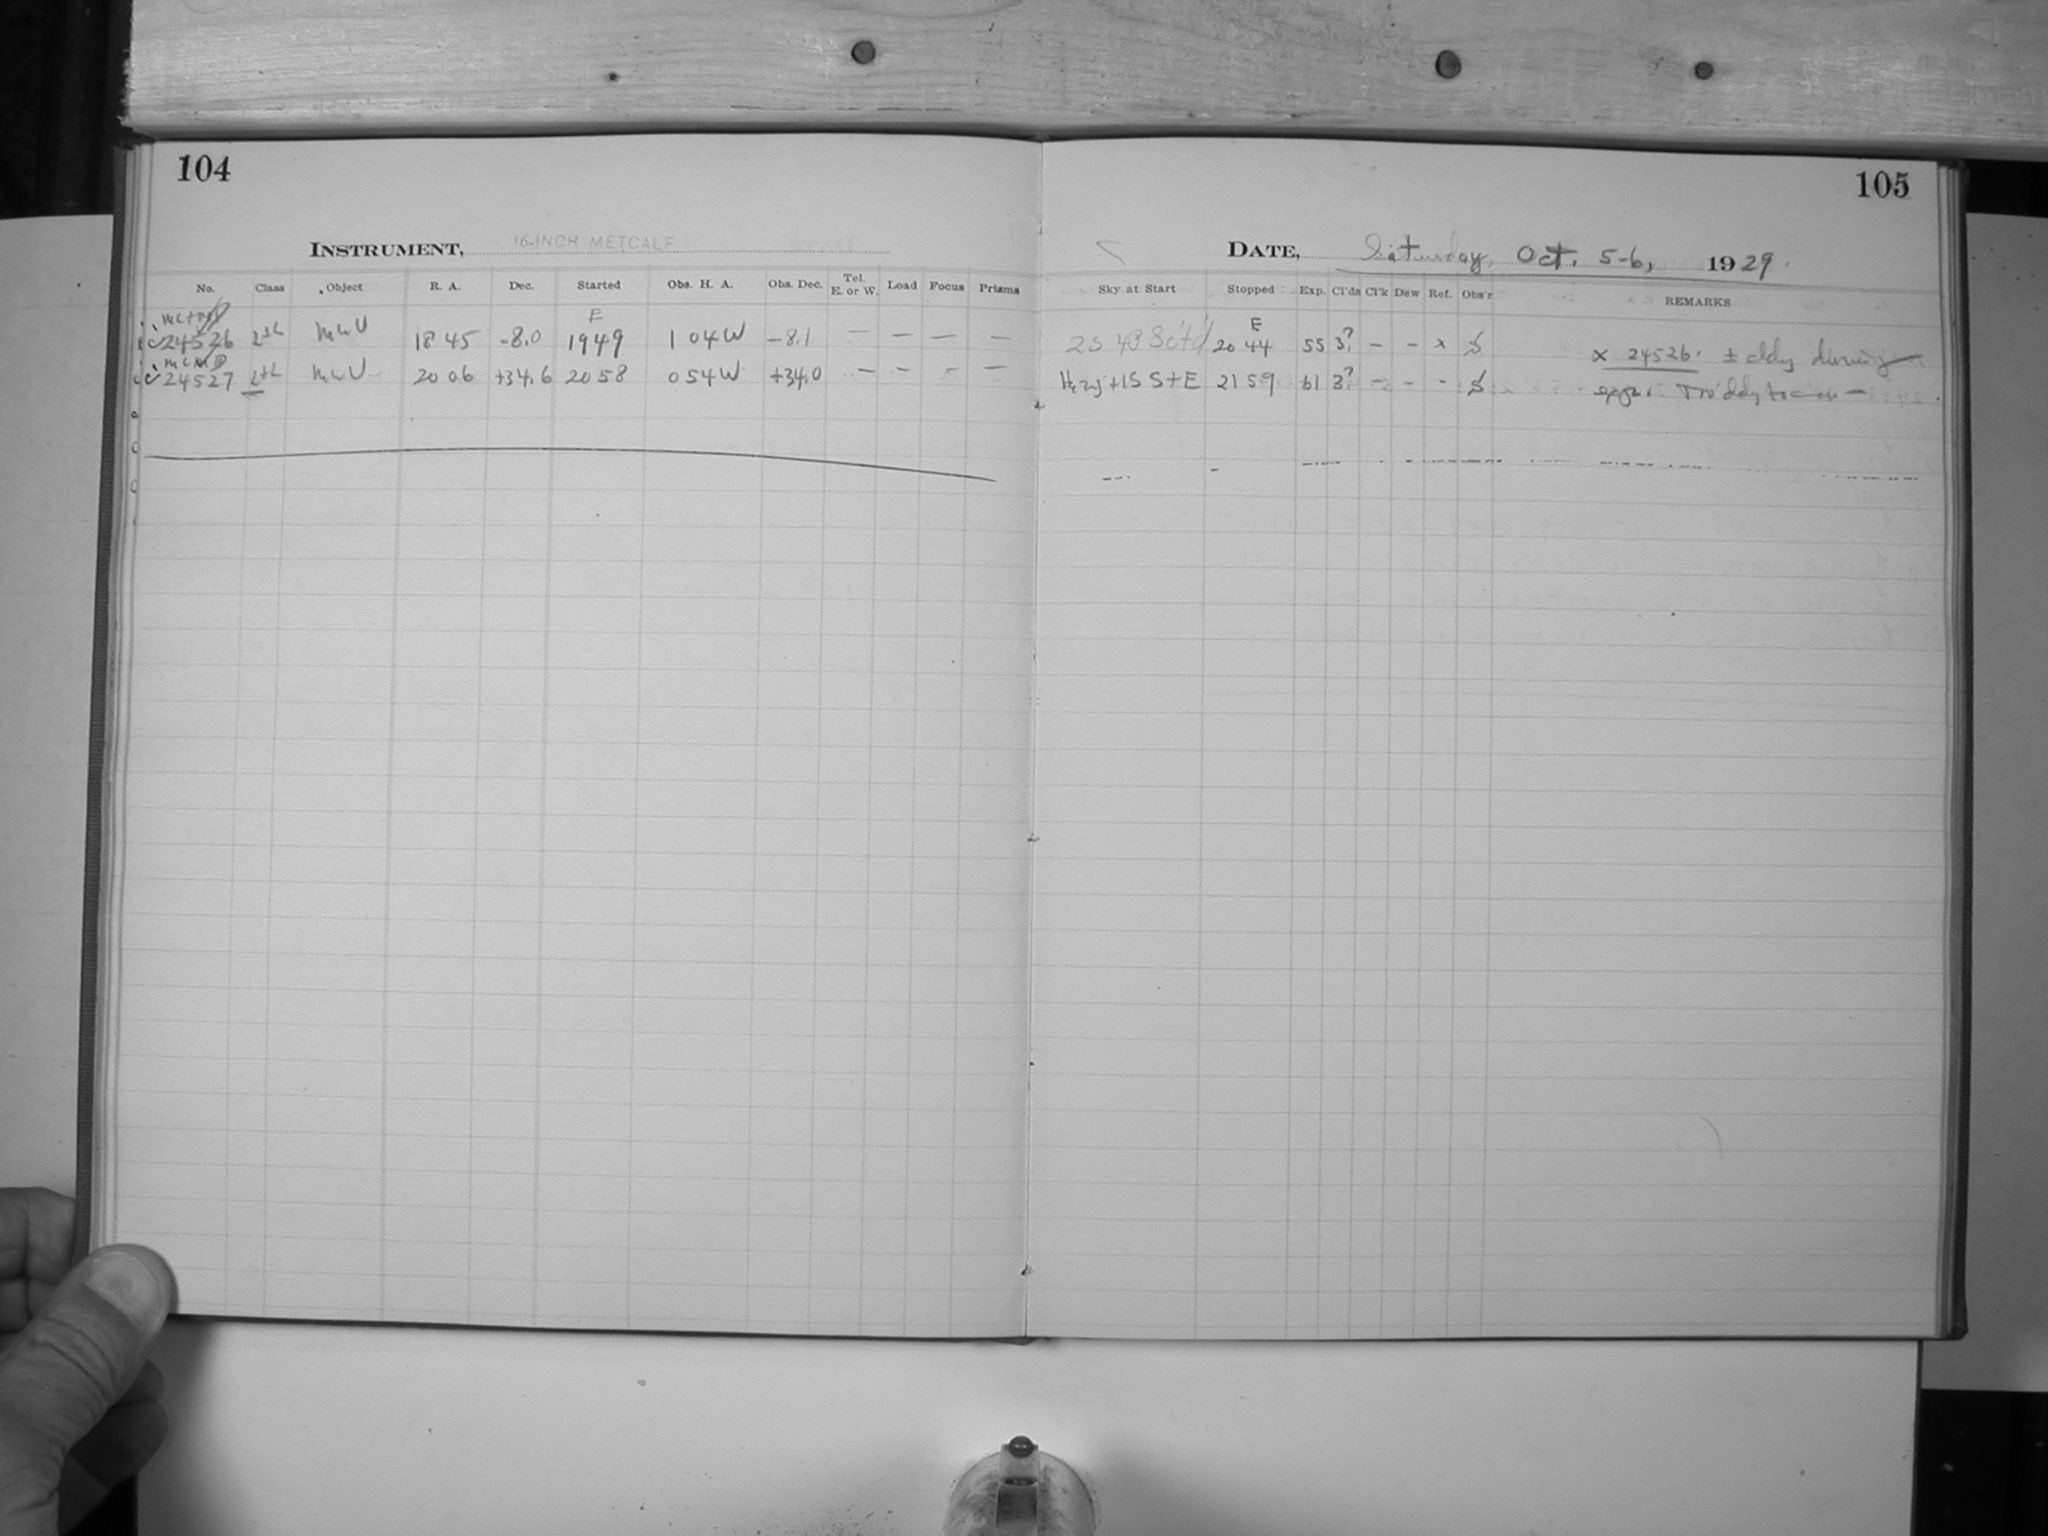 104
105
INSTRUMENT, 16-INCH METCALF
DATE, Saturday, Oct. 5-6, 1929
No. Class Object R. A. Dec. Started Obs. H. A. Obs. Dec. Tel. E. or W. Load Focus Prisms
Sky at Start Stopped Exp. Cl'ds Cl'k Dew Ref. Obs'r REMARKS
E
E
24526 MWU 18 45 -8.0 1949 1 04W -8.1 — — — —
20 44 55 3? - - x
x 24526. ± cldy during
24527 MWU 20 06 +34.6 20 58 0 54W +34.0 — - - —
+1S S+E 21 59 61 3? - - -